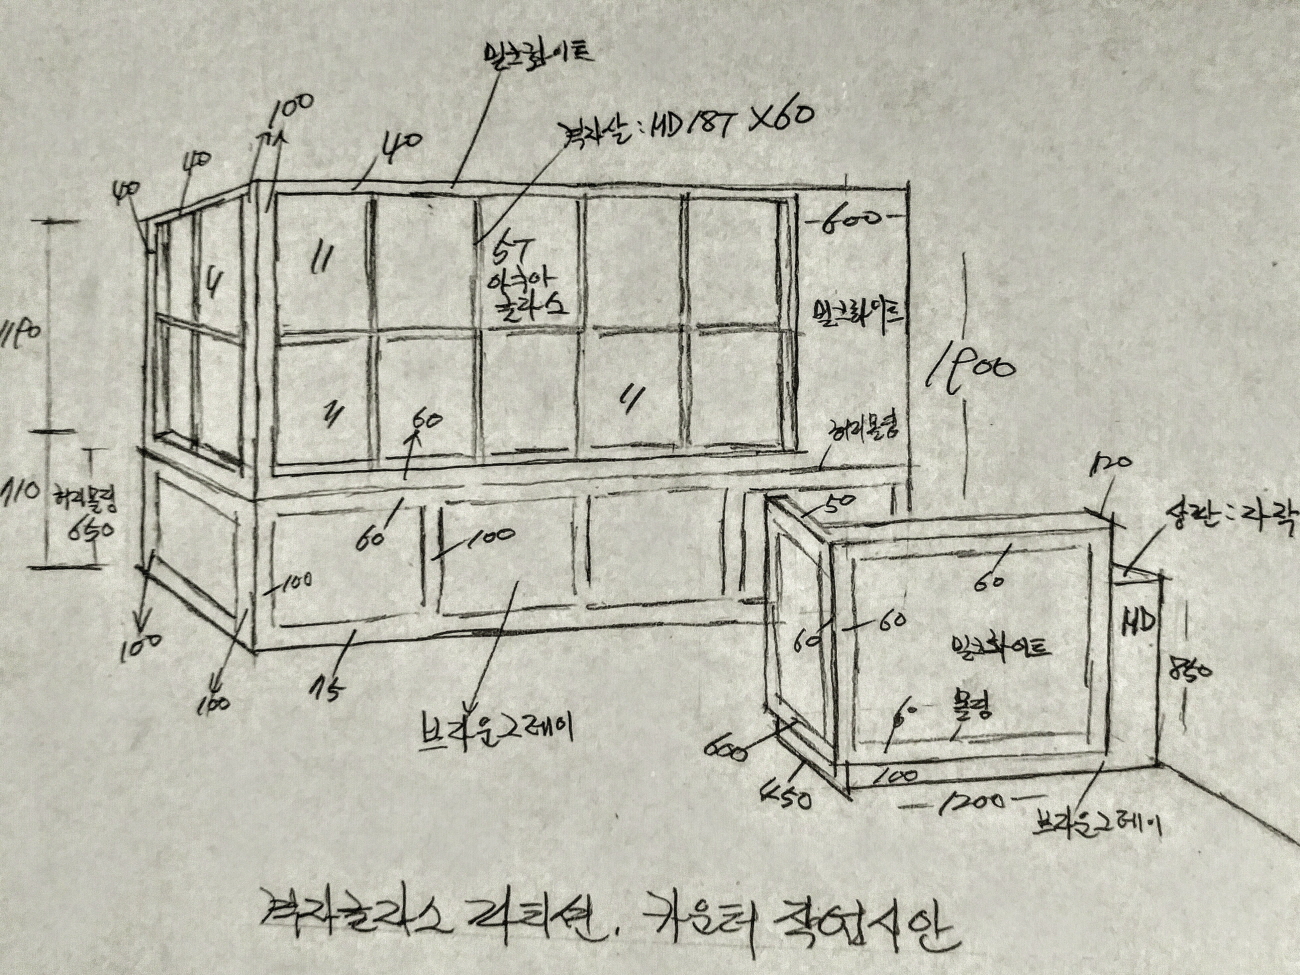 밀크화이트
격자살:HD18T X60
100
40
40
40
-600-
5T
아쿠아
글라스
밀크화이트
1190
1900
60
허리몰딩
120
710
허리몰딩
650
50
상판:
60
100
100
60
HD
60
60
밀크화이트
850
100
100
75
60
몰딩
브라운그레이
600
450
100
-1200-
브라운그레이
격자글라스 파티션. 카운터 작업시안